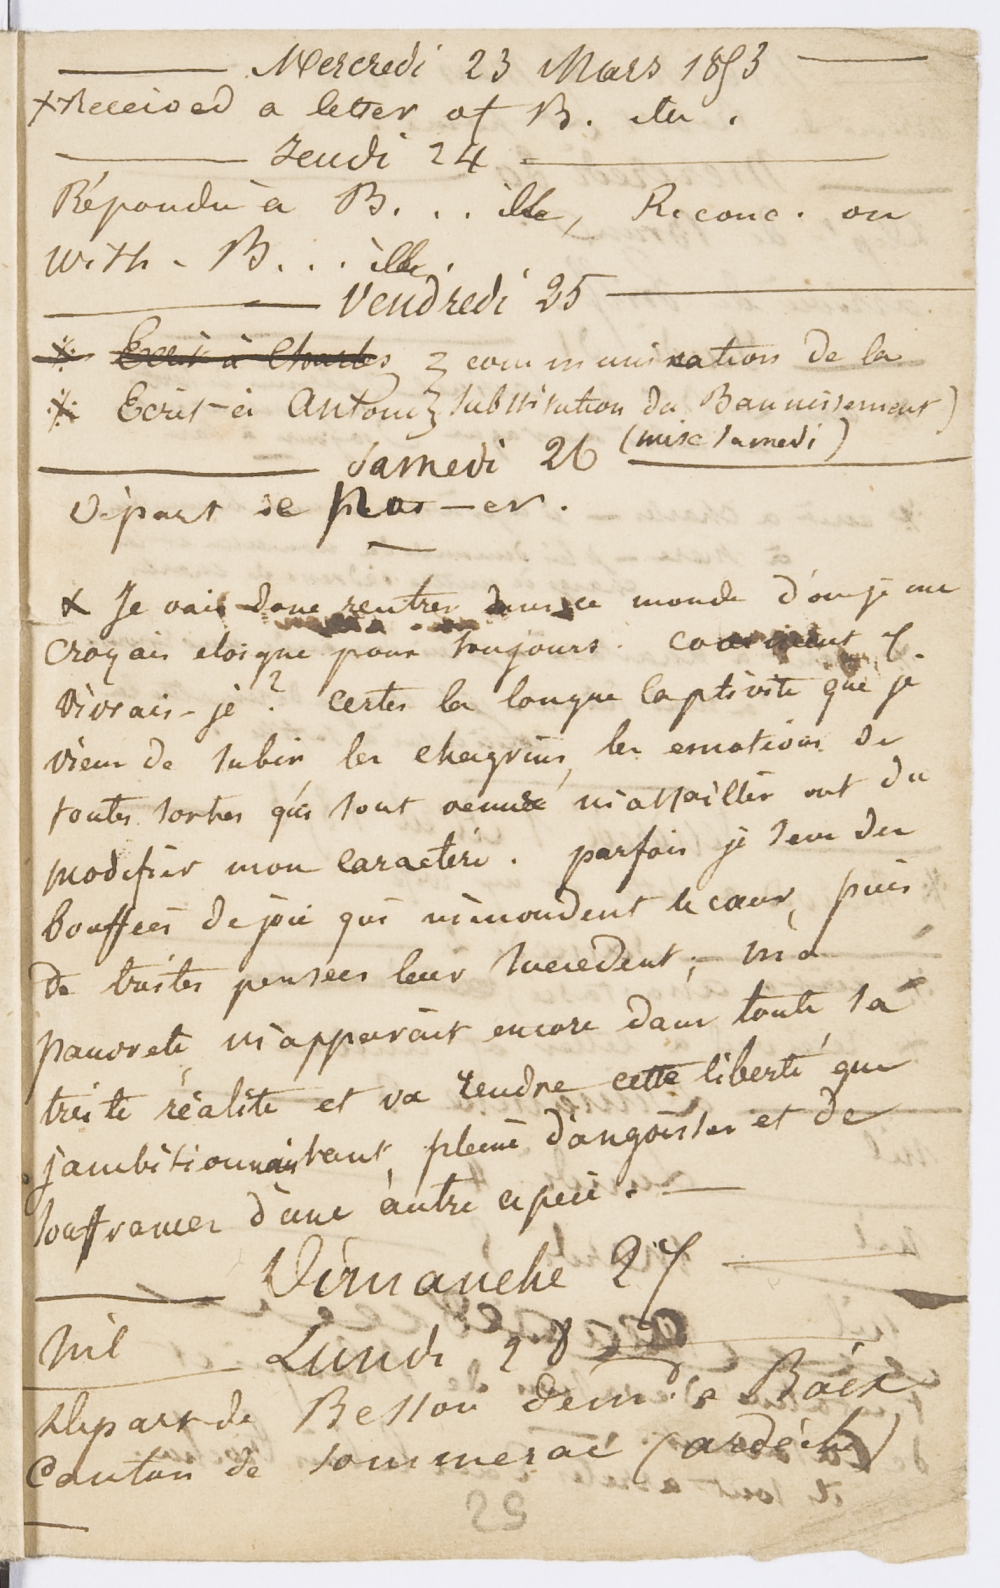 Mercredi 23 Mars 1853
+ Received a letter of B.
Jeudi 24
Répondu à B. . . ille, Reconc. on
with - B. . . ille.
Vendredi 25
Ecrit à Charles } communication de la
Ecrit à Antoni } substitution du Bannissement)
(mise samedi)
Samedi 26
Départ de Pras-er.
x Je vais donc rentrer dans ce monde d'ou je me
croyais eloigné pour toujours. Comment y
vivrais-je? Certes la longue captivité que je
viens de subir les chagrins, les emotions de
toutes sortes qui sont venues m'assaillir ont du
modifier mon caractère. parfois je sens des
bouffées de joie qui m'inondent le cœur, puis
de tristes pensées leur succèdent; ma
pauvreté m'apparait encore dans toute sa
triste réalité et va rendre cette liberté que
j'ambitionnais tant, pleine d'angoisses et de
souffrances d'une autre espèce. —
Dimanche 27
Nil
Lundi 28
Départ de Besson dem.t à Baix
Canton de Sommerac (ardèche)
29